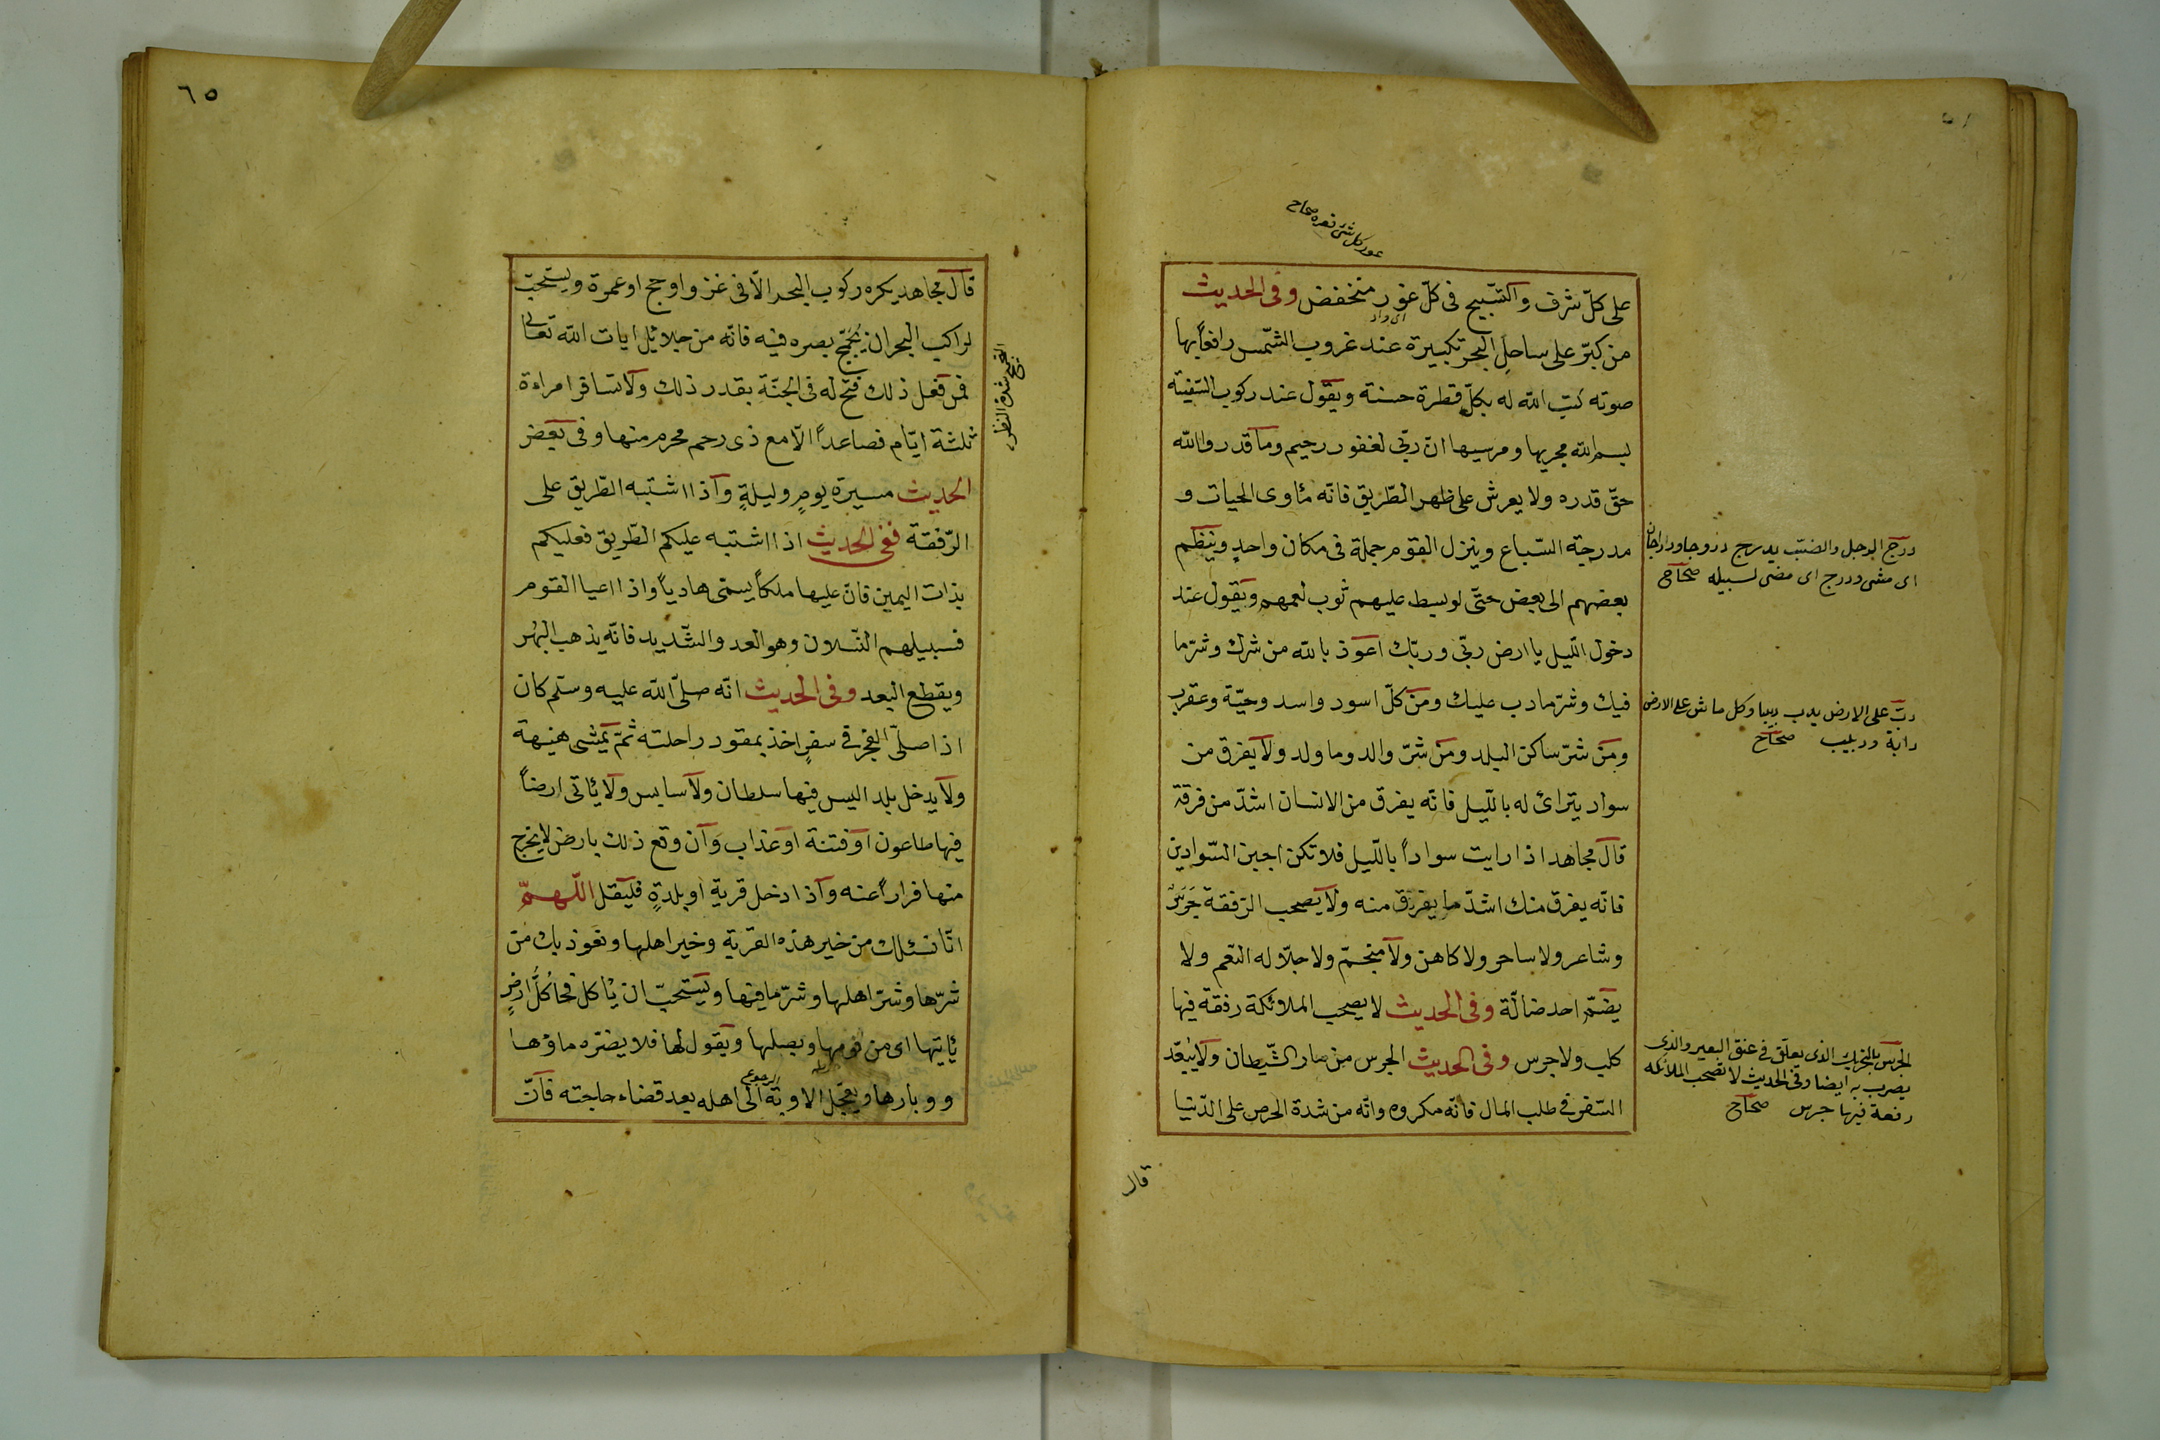 غور كل شئ قعره صحاح
على كلّ شرف والتّسبيح فى كلّ غور منخفض وفى الحديث
اى واد
من كبّر على ساحل البحر تكبيرة عند غروب الشّمس رافعاً بها
صوته كتب اللّه له بكلّ قطرة حسنة ويقول عند ركوب السّفينة
بسم اللّه مجريها ومرسيها انّ ربّى لغفور رحيم وما قدروا اللّه
حقّ قدره ولا يعرش على ظهر الطّريق فانّه مأوى الحيات و
مدرجة السّباع وينزل القوم جملة فى مكان واحدٍ وينظم
بعضهم الى بعض حتّى لو بسط عليهم ثوب لعمهم ويقول عند
دخول اللّيل يا ارض ربّى وربّك اعوذ باللّه من شرك وشرّ ما
فيك وشرّ ما دب عليك ومن كلّ اسود واسد وحيّة وعقرب
ومن شرّ ساكن البلد ومن شرّ والد وما ولد ولا يفرق من
سواد يترائ له باللّيل فانّه يفرق من الانسان اشدّ من فرقة
قال مجاهد اذا رايت سواداً باللّيل فلا تكن اجبن السّوادين
فانّه يفرق منك اشدّ ما يفرق منه ولا يصحب الرّفقة جَرَسٌ
وشاعر ولا ساحر ولا كاهن ولا منجّم ولا جلّاله النّعم ولا
يضمّ احد ضالّة وفى الحديث لا يصحب الملائكة رفقة فيها
كلب ولا جرس وفى الحديث الجرس من مار الشّيطان ولا يُبعّد
السّفر فى طلب المال فانّه مكروه وانّه من شدة الحرص على الدّنيا
قال
درج الرجل والضبّ يدرج دروجا ودرجانا
اى مشى ودرج اى مضى لسبيله صحاح
دبّ على الارض يدب دبيبا وكل ماش على الارض
دابة ودبيب صحاح
الجرس بالتحريك الذى يعلّق فى عنق البعير والذى
يضرب به ايضا وفى الحديث لا تصحب الملائكة
رفقة فيها جرس صحاح
٦٥
قال مجاهد يكره ركوب البحر الّا فى غزو او حج او عمرة ويستحبّ
لراكب البحر ان يُجمّح بصره فيه فانّه من جلائل ايات اللّه تعالى
فمن فعل ذلك فتح له فى الجنّة بقدر ذلك ولا تسافر امراءة
ثلثة ايّام فصاعداً الّا مع ذى رحم محرم منها وفى بعض
الحديث مسيرة يومٍ وليلةٍ واذا اشتبه الطّريق على
الرّفقة ففى الحديث اذا اشتبه عليكم الطّريق فعليكم
بذات اليمين فانّ عليها ملكاً يسمّى هادياً واذا اعيا القوم
فسبيلهم النّسلان وهو العدو الشّديد فانّه يذهب البهر
ويقطع البعد وفى الحديث انّه صلّى اللّه عليه وسلّم كان
اذا صلّى الفجر فى سفرٍ اخذ بمقود راحلته ثمّ يمشى هنيهة
ولا يدخل بلدا ليس فيها سلطان ولا سايس ولا يأتى ارضاً
فيها طاعون او فتنة او عذاب وان وقع ذلك بارض لا يخرج
منها فراراً عنه واذا دخل قرية او بلدةٍ فليقل اللّهمّ
انّا نسئلك من خير هذه القرية وخير اهلها ونعوذ بك من
شرّها وشرّ اهلها وشرّ ما فيها ويستحبّ ان يأكل فحا كُلّ ارضٍ
يأتيها اى من فومها وبصلها ويقول لها فلا يضرّه ماؤها
الرجوع
ووبارها ويعجّل الاوبة الى اهله بعد قضاء حاجته فانّ
شدة النظر